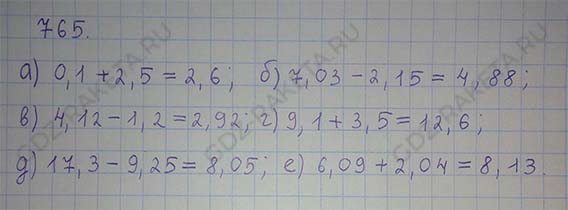 765.
а) 0,1 + 2,5 = 2,6; б) 7,03 - 2,15 = 4,88;
в) 4,12 - 1,2 = 2,92; г) 9,1 + 3,5 = 12,6;
д) 17,3 - 9,25 = 8,05; е) 6,09 + 2,04 = 8,13.
GDZ-RAKETA.RU
GDZ-RAKETA.RU
GDZ-RAKETA.RU